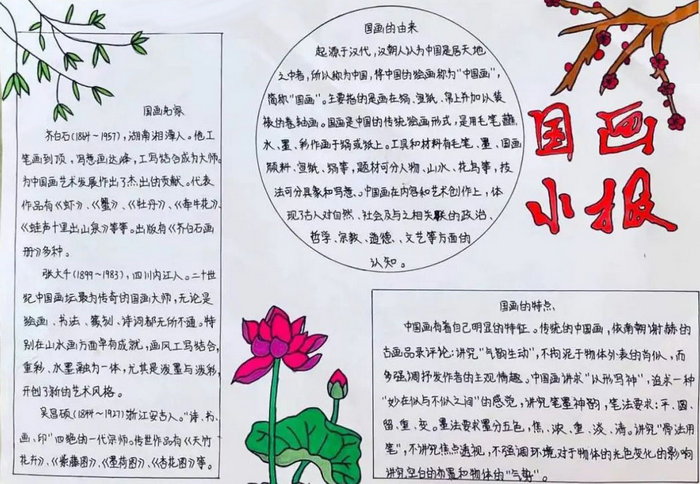 国画小报
国画名家
齐白石(1864～1957),湖南湘潭人。他工
笔画到顶,写意画达峰,工写结合成为大师。
为中国画艺术发展作出了杰出的贡献。代表
作品有《虾》、《蟹》、《牡丹》、《牵牛花》、
《蛙声十里出山泉》等等。出版有《齐白石画
册》多种。
张大千(1899～1983),四川内江人。二十世
纪中国画坛最为传奇的国画大师,无论是
绘画、书法、篆刻、诗词都无所不通。特
别在山水画方面卓有成就,画风工写结合,
重彩、水墨融为一体,尤其是泼墨与泼彩,
开创了新的艺术风格。
吴昌硕(1844～1927)浙江安吉人。“诗、书、
画、印”四绝的一代宗师。传世作品有《天竹
花卉》、《紫藤图》、《墨荷图》、《杏花图》等。
国画的由来
起源于汉代,汉朝人认为中国是居天地
之中者,所以称为中国,将中国的绘画称为“中国画”,
简称“国画”。主要指的是画在绢、宣纸、帛上并加以装
裱的卷轴画。国画是中国的传统绘画形式,是用毛笔蘸
水、墨、彩作画于绢或纸上。工具和材料有毛笔、墨、国画
颜料、宣纸、绢等,题材可分人物、山水、花鸟等,技
法可分具象和写意。中国画在内容和艺术创作上,体
现了古人对自然、社会及与之相关联的政治、
哲学、宗教、道德、、文艺等方面的
认知。
国画的特点、
中国画有着自己明显的特征。传统的中国画,依南朝谢赫的
古画品录评论:讲究“气韵生动”,不拘泥于物体外表的肖似,而
多强调抒发作者的主观情趣。中国画讲求“以形写神”,追求一种
“妙在似与不似之间”的感觉,讲究笔墨神韵,笔法要求:平、圆
留、重、变。墨法要求墨分五色,焦、浓、重、淡、清。讲究“骨法用
笔”,不讲究焦点透视,不强调环境对于物体的光色变化的影响
讲究空白的布置和物体的“气势”。